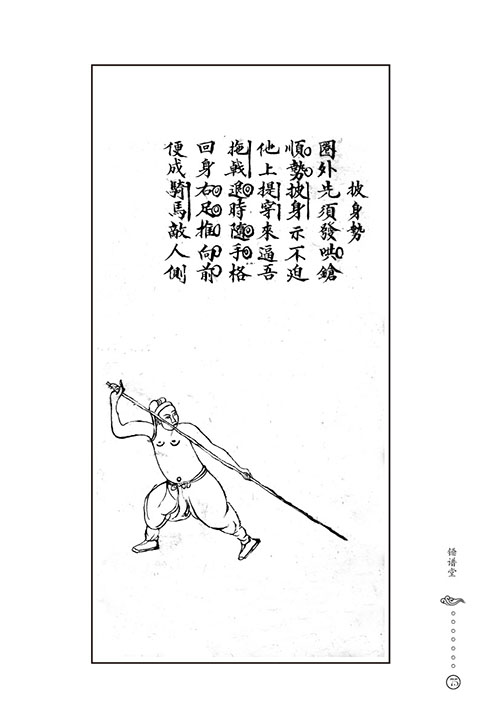 披身勢
圈外先須發哄鎗
順勢披身示不迫
他上提穿來逼吾
拖戟退時隨手格
回身右足推向前
便成騎馬敵人側
锤谱堂
75